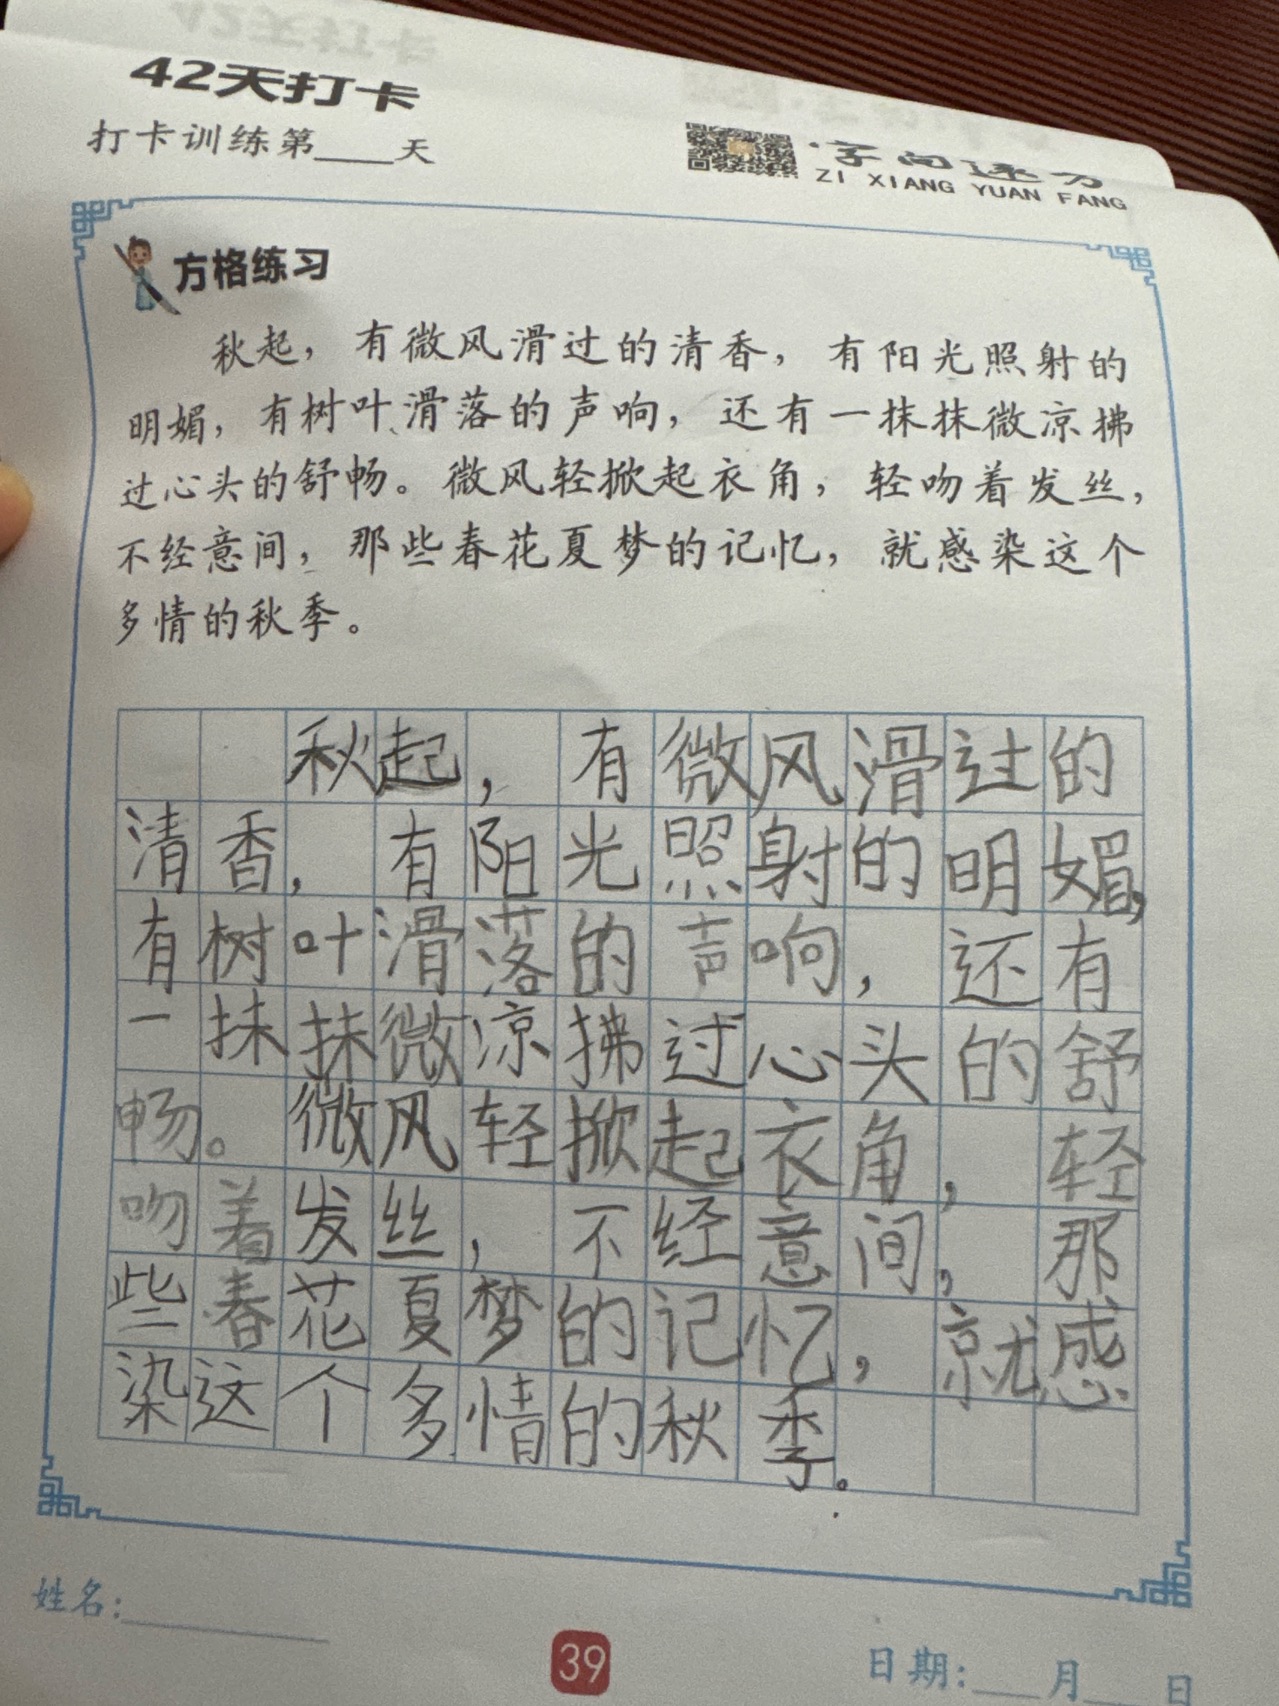 42天打卡
打卡训练第____天
字向远方
ZI XIANG YUAN FANG
方格练习
秋起，有微风滑过的清香，有阳光照射的
明媚，有树叶滑落的声响，还有一抹抹微凉拂
过心头的舒畅。微风轻掀起衣角，轻吻着发丝，
不经意间，那些春花夏梦的记忆，就感染这个
多情的秋季。
秋起，有微风滑过的
清香，有阳光照射的明媚，
有树叶滑落的声响，还有
一抹抹微凉拂过心头的舒
畅。微风轻掀起衣角，轻
吻着发丝，不经意间，那
些春花夏梦的记忆，就感
染这个多情的秋季。
姓名:________
39
日期:___月___日